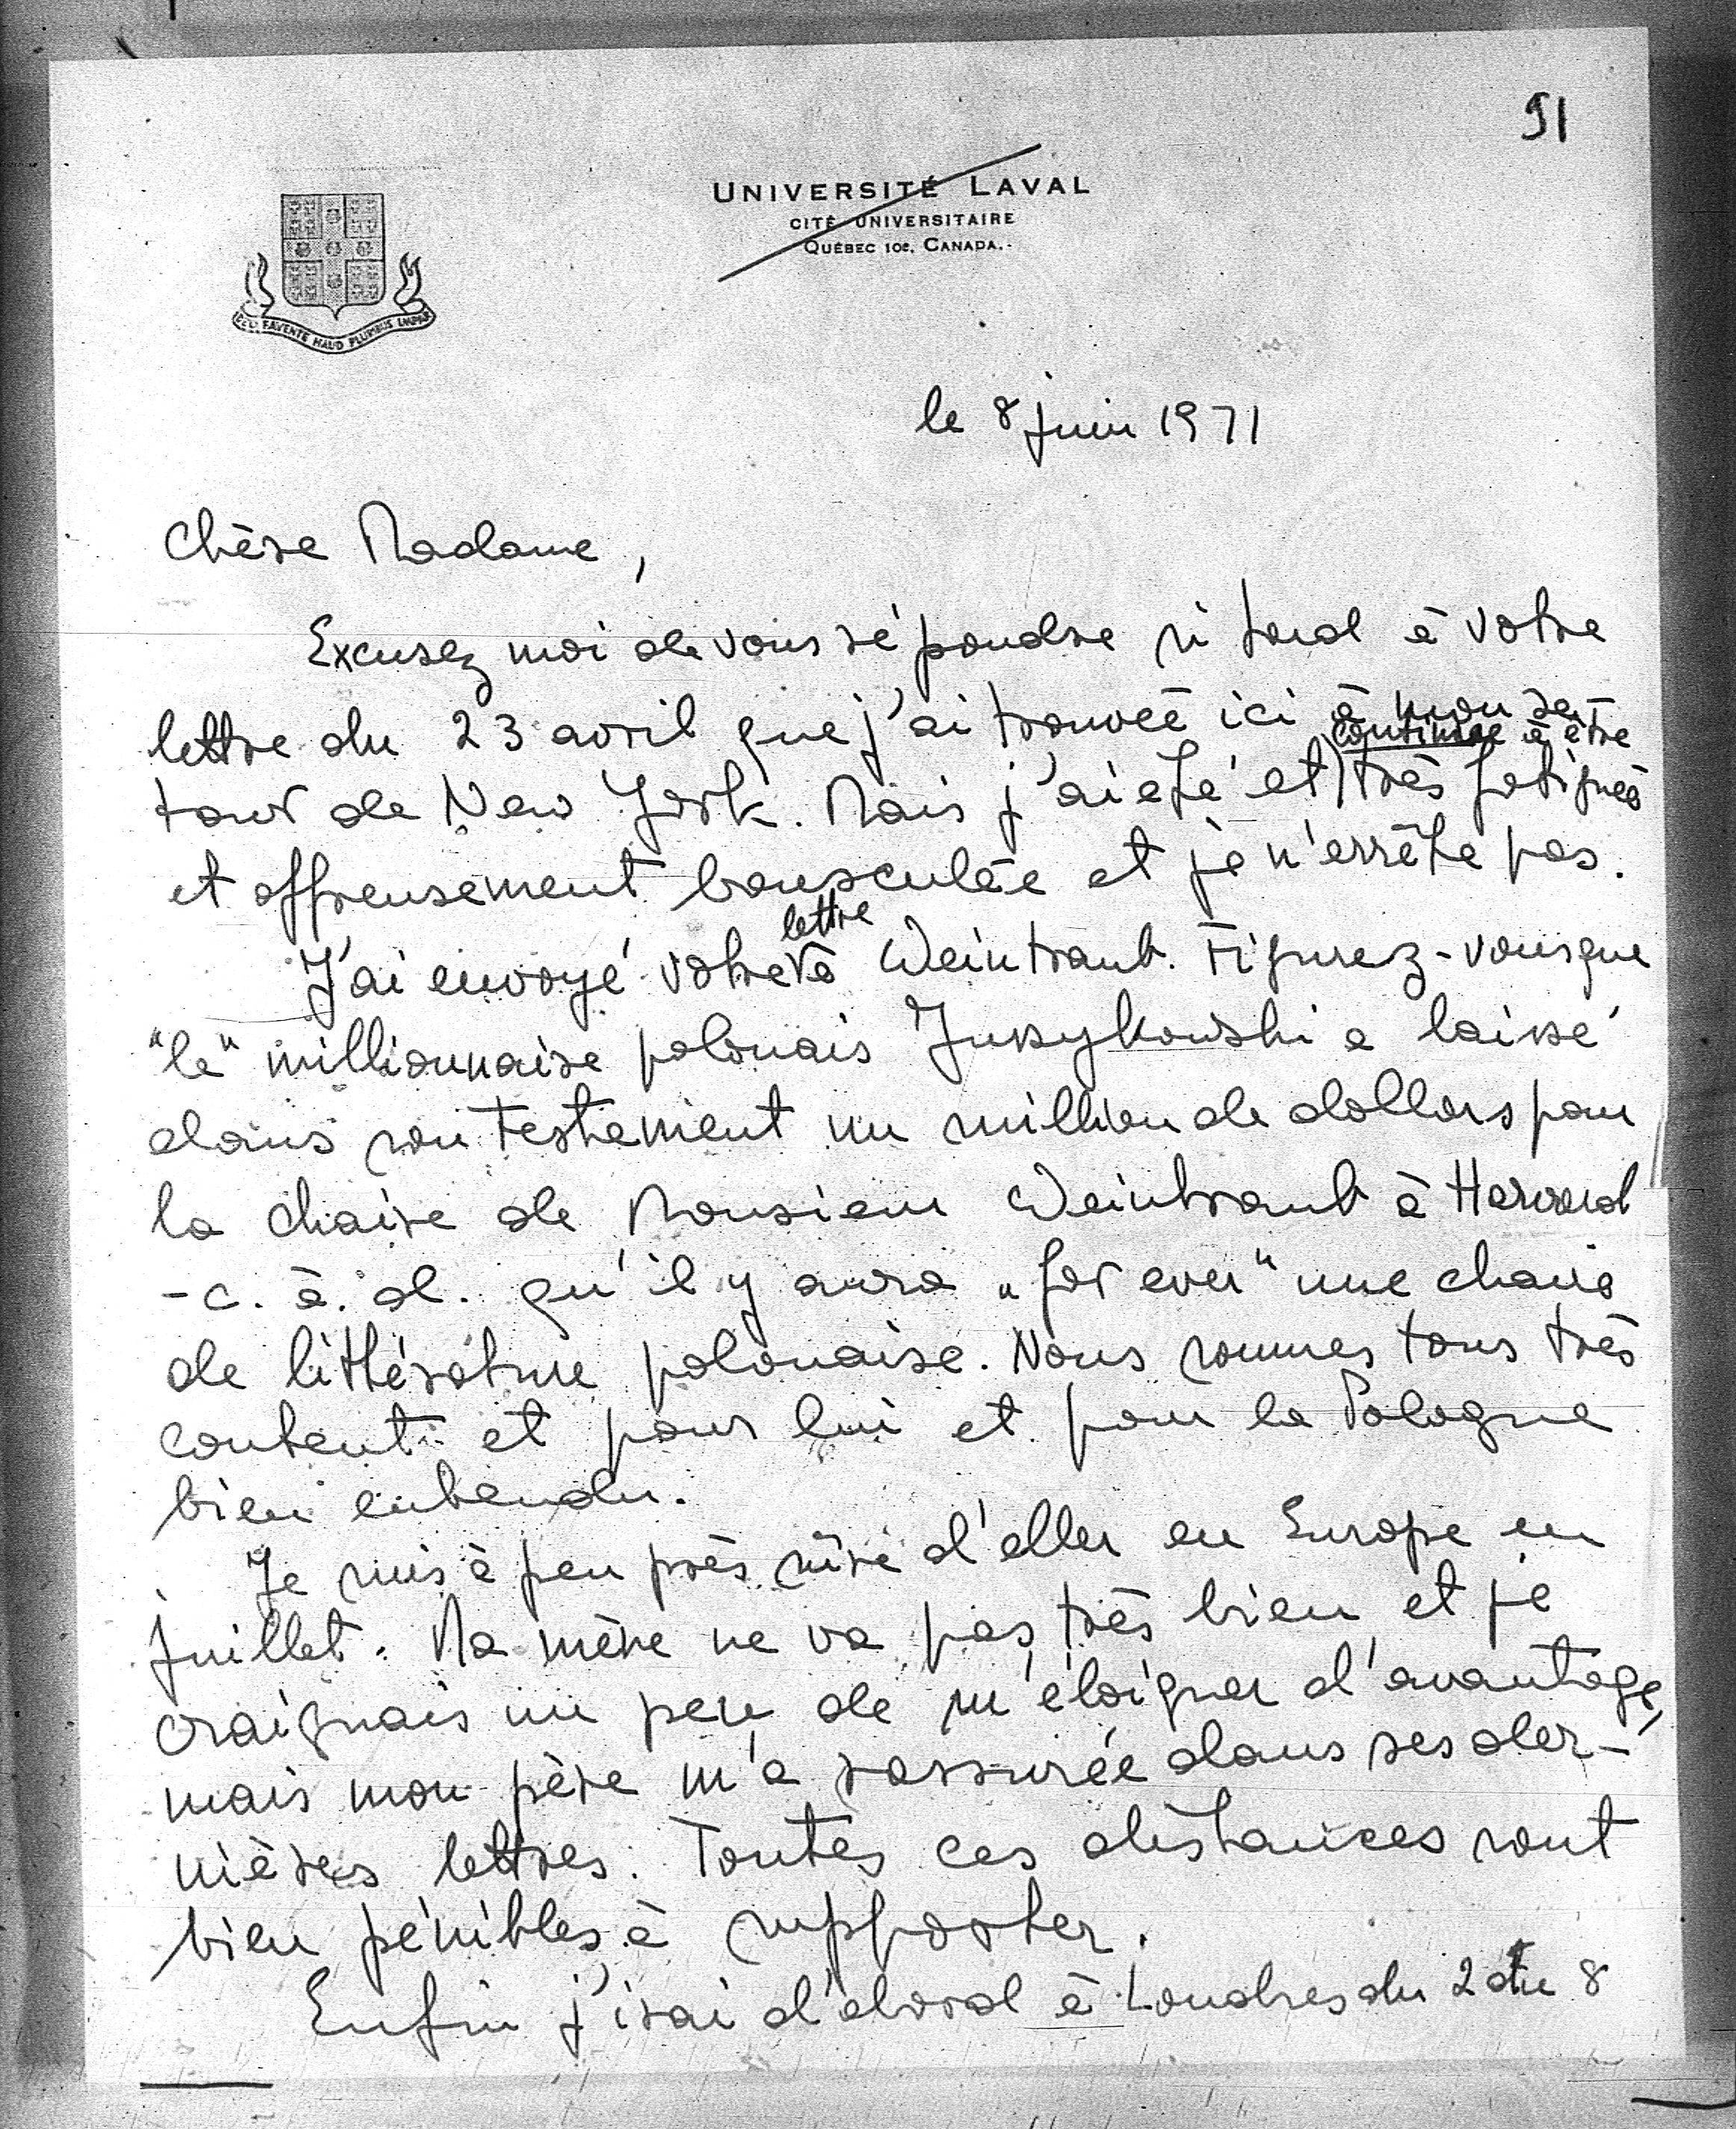 91
UNIVERSITÉ LAVAL
CITÉ UNIVERSITAIRE
QUÉBEC 10e, CANADA.-
DEO FAVENTE HAUD PLURIBUS IMPAR
le 8 juin 1971
Chère Madame,
Excusez moi de vous répondre si tard à votre
lettre du 23 avril que j'ai trouvée ici à mon re-
tour de New York. Mais j'ai été et continue à être très fatiguée
et affreusement bousculée et je n'arrête pas.
J'ai envoyé votre lettre à Weintraub. Figurez-vous que
"le" millionnaire polonais Jurzykowski a laissé
dans son testament un million de dollars pour
la chaire de Monsieur Weintraub à Harvard
- c. à. d. qu'il y aura „for ever" une chaire
de littérature polonaise. Nous sommes tous très
contents et pour lui et pour la Pologne
bien entendu.
Je suis à peu près sûre d'aller en Europe en
juillet. Ma mère ne va pas très bien et je
craignais un peu de m'éloigner d'avantage,
mais mon père m'a rassurée dans ses der-
nières lettres. Toutes ces distances sont
bien pénibles à supporter.
Enfin j'irai d'abord à Londres du 2 au 8